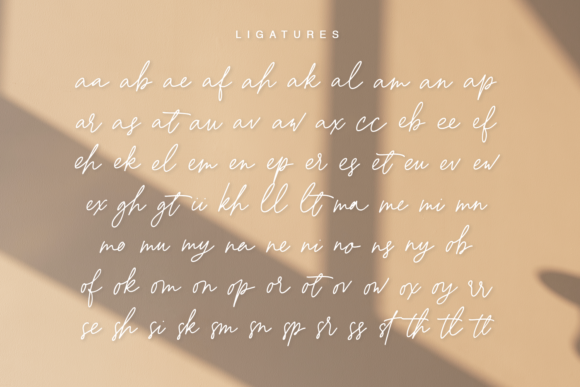 LIGATURES
aa ab ae af ah ak al am an ap
ar as at au av aw ax cc eb ee ef
eh ek el em en ep er es et eu ev ew
ex gh gt ii kh ll lt ma me mi mn
mo mu my na ne ni no ns ny ob
of ok om on op or ot ov ow ox oy rr
se sh si sk sm sn sp sr ss st th tl tt